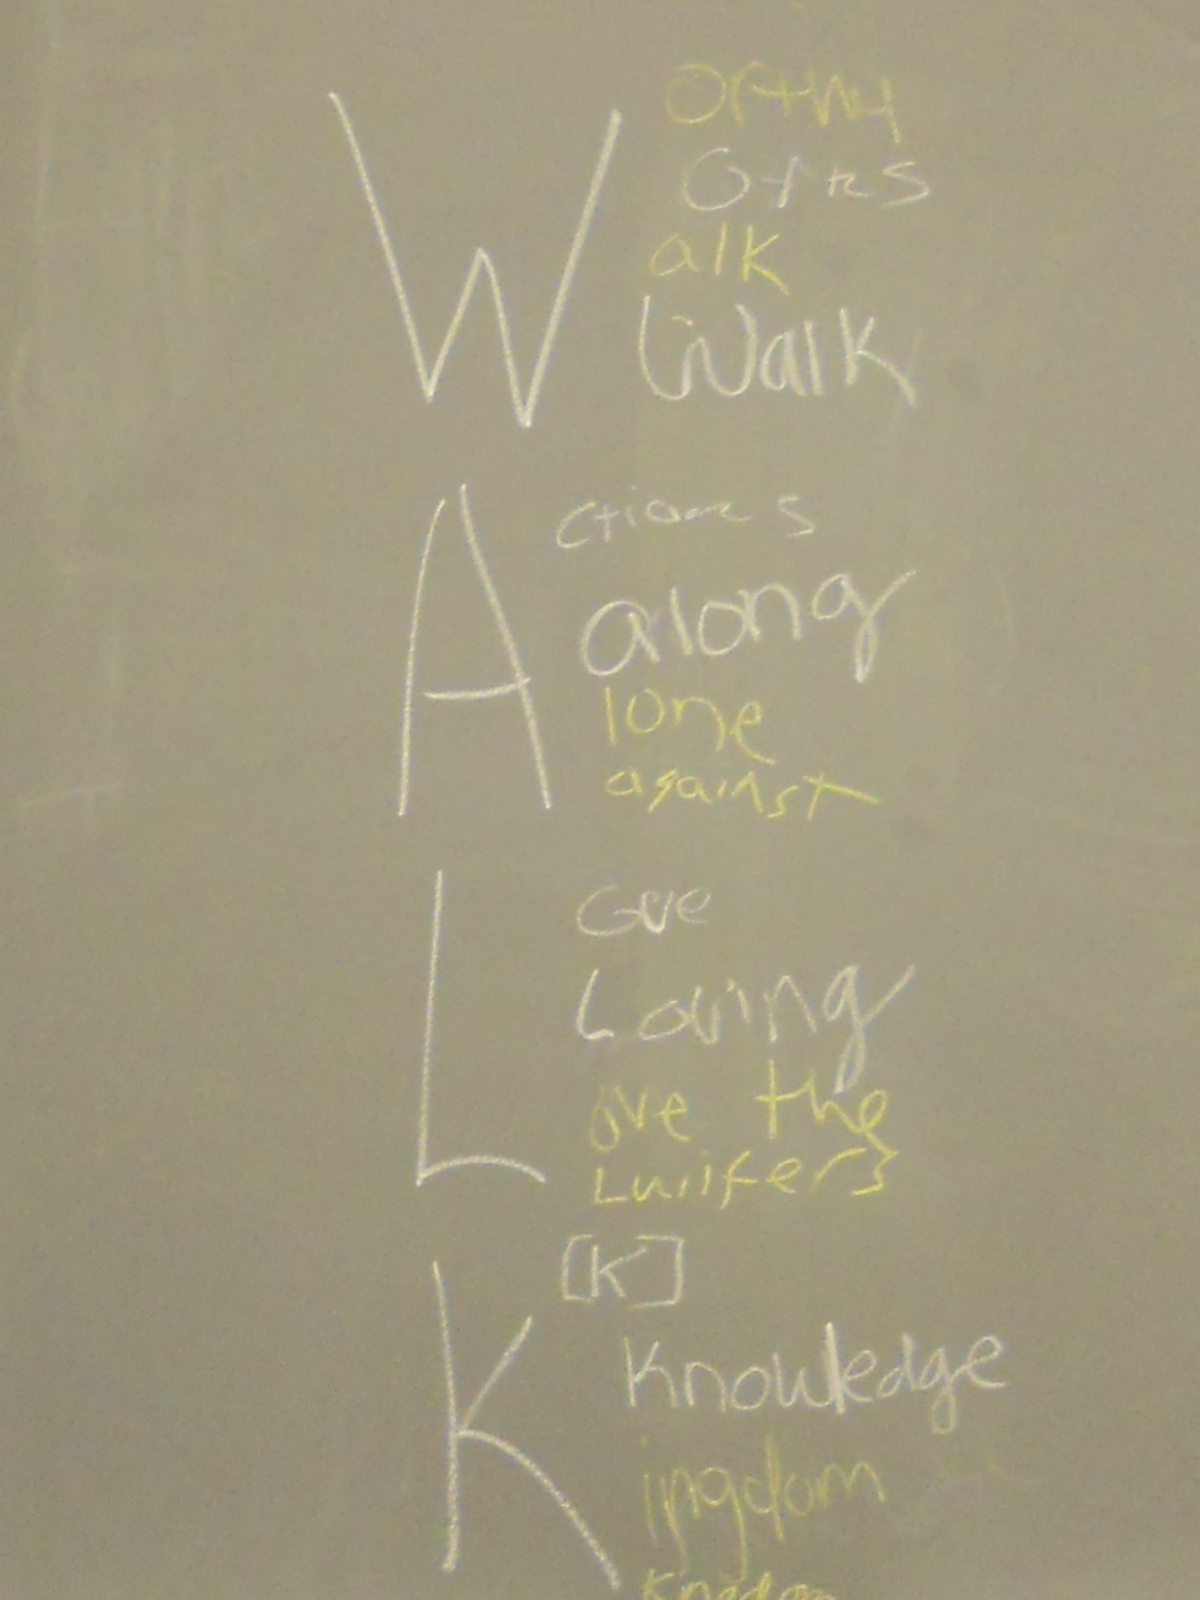 W
orthy
orks
alk
Walk
A
ctions
along
lone
against
L
ove
Loving
ove the
Lucifers
K
[K]
Knowledge
ingdom